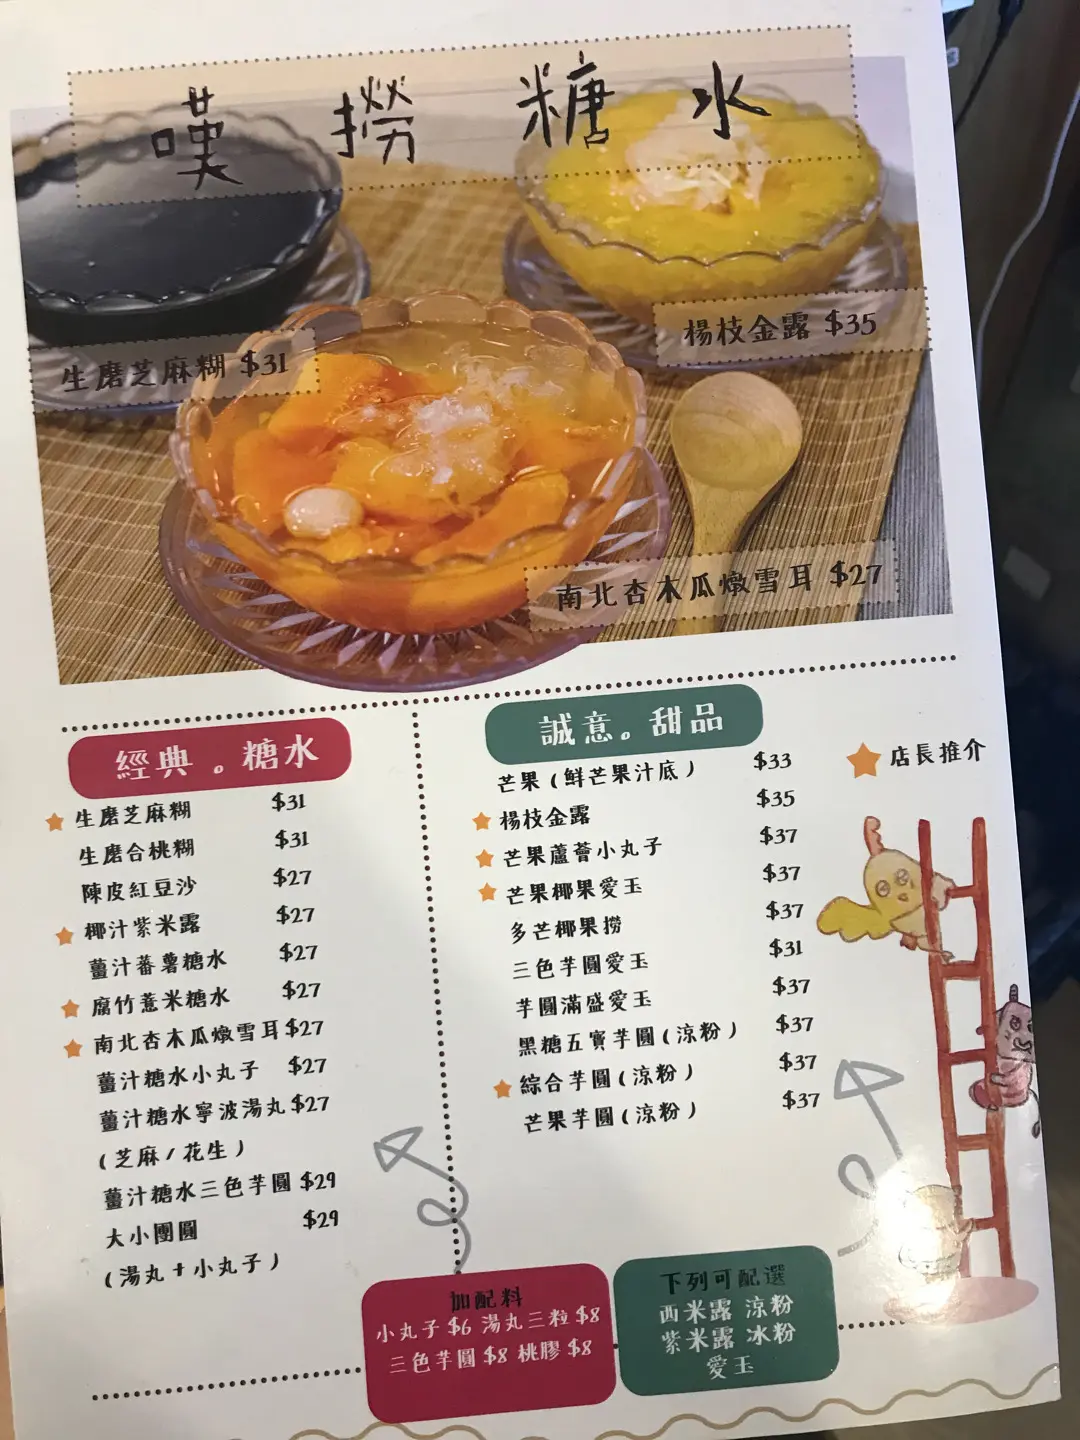 嘆撈糖水
楊枝金露 $35
生磨芝麻糊 $31
南北杏木瓜燉雪耳 $27
經典。糖水
生磨芝麻糊 $31
生磨合桃糊 $31
陳皮紅豆沙 $27
椰汁紫米露 $27
薑汁蕃薯糖水 $27
腐竹薏米糖水 $27
南北杏木瓜燉雪耳 $27
薑汁糖水小丸子 $27
薑汁糖水寧波湯丸 $27
(芝麻/花生)
薑汁糖水三色芋圓 $29
大小團圓 $29
(湯丸+小丸子)
誠意。甜品
店長推介
芒果(鮮芒果汁底) $33
楊枝金露 $35
芒果蘆薈小丸子 $37
芒果椰果愛玉 $37
多芒椰果撈 $37
三色芋圓愛玉 $31
芋圓滿盛愛玉 $37
黑糖五寶芋圓(涼粉) $37
綜合芋圓(涼粉) $37
芒果芋圓(涼粉) $37
加配料
小丸子 $6 湯丸三粒 $8
三色芋圓 $8 桃膠 $8
下列可配選
西米露 涼粉
紫米露 冰粉
愛玉